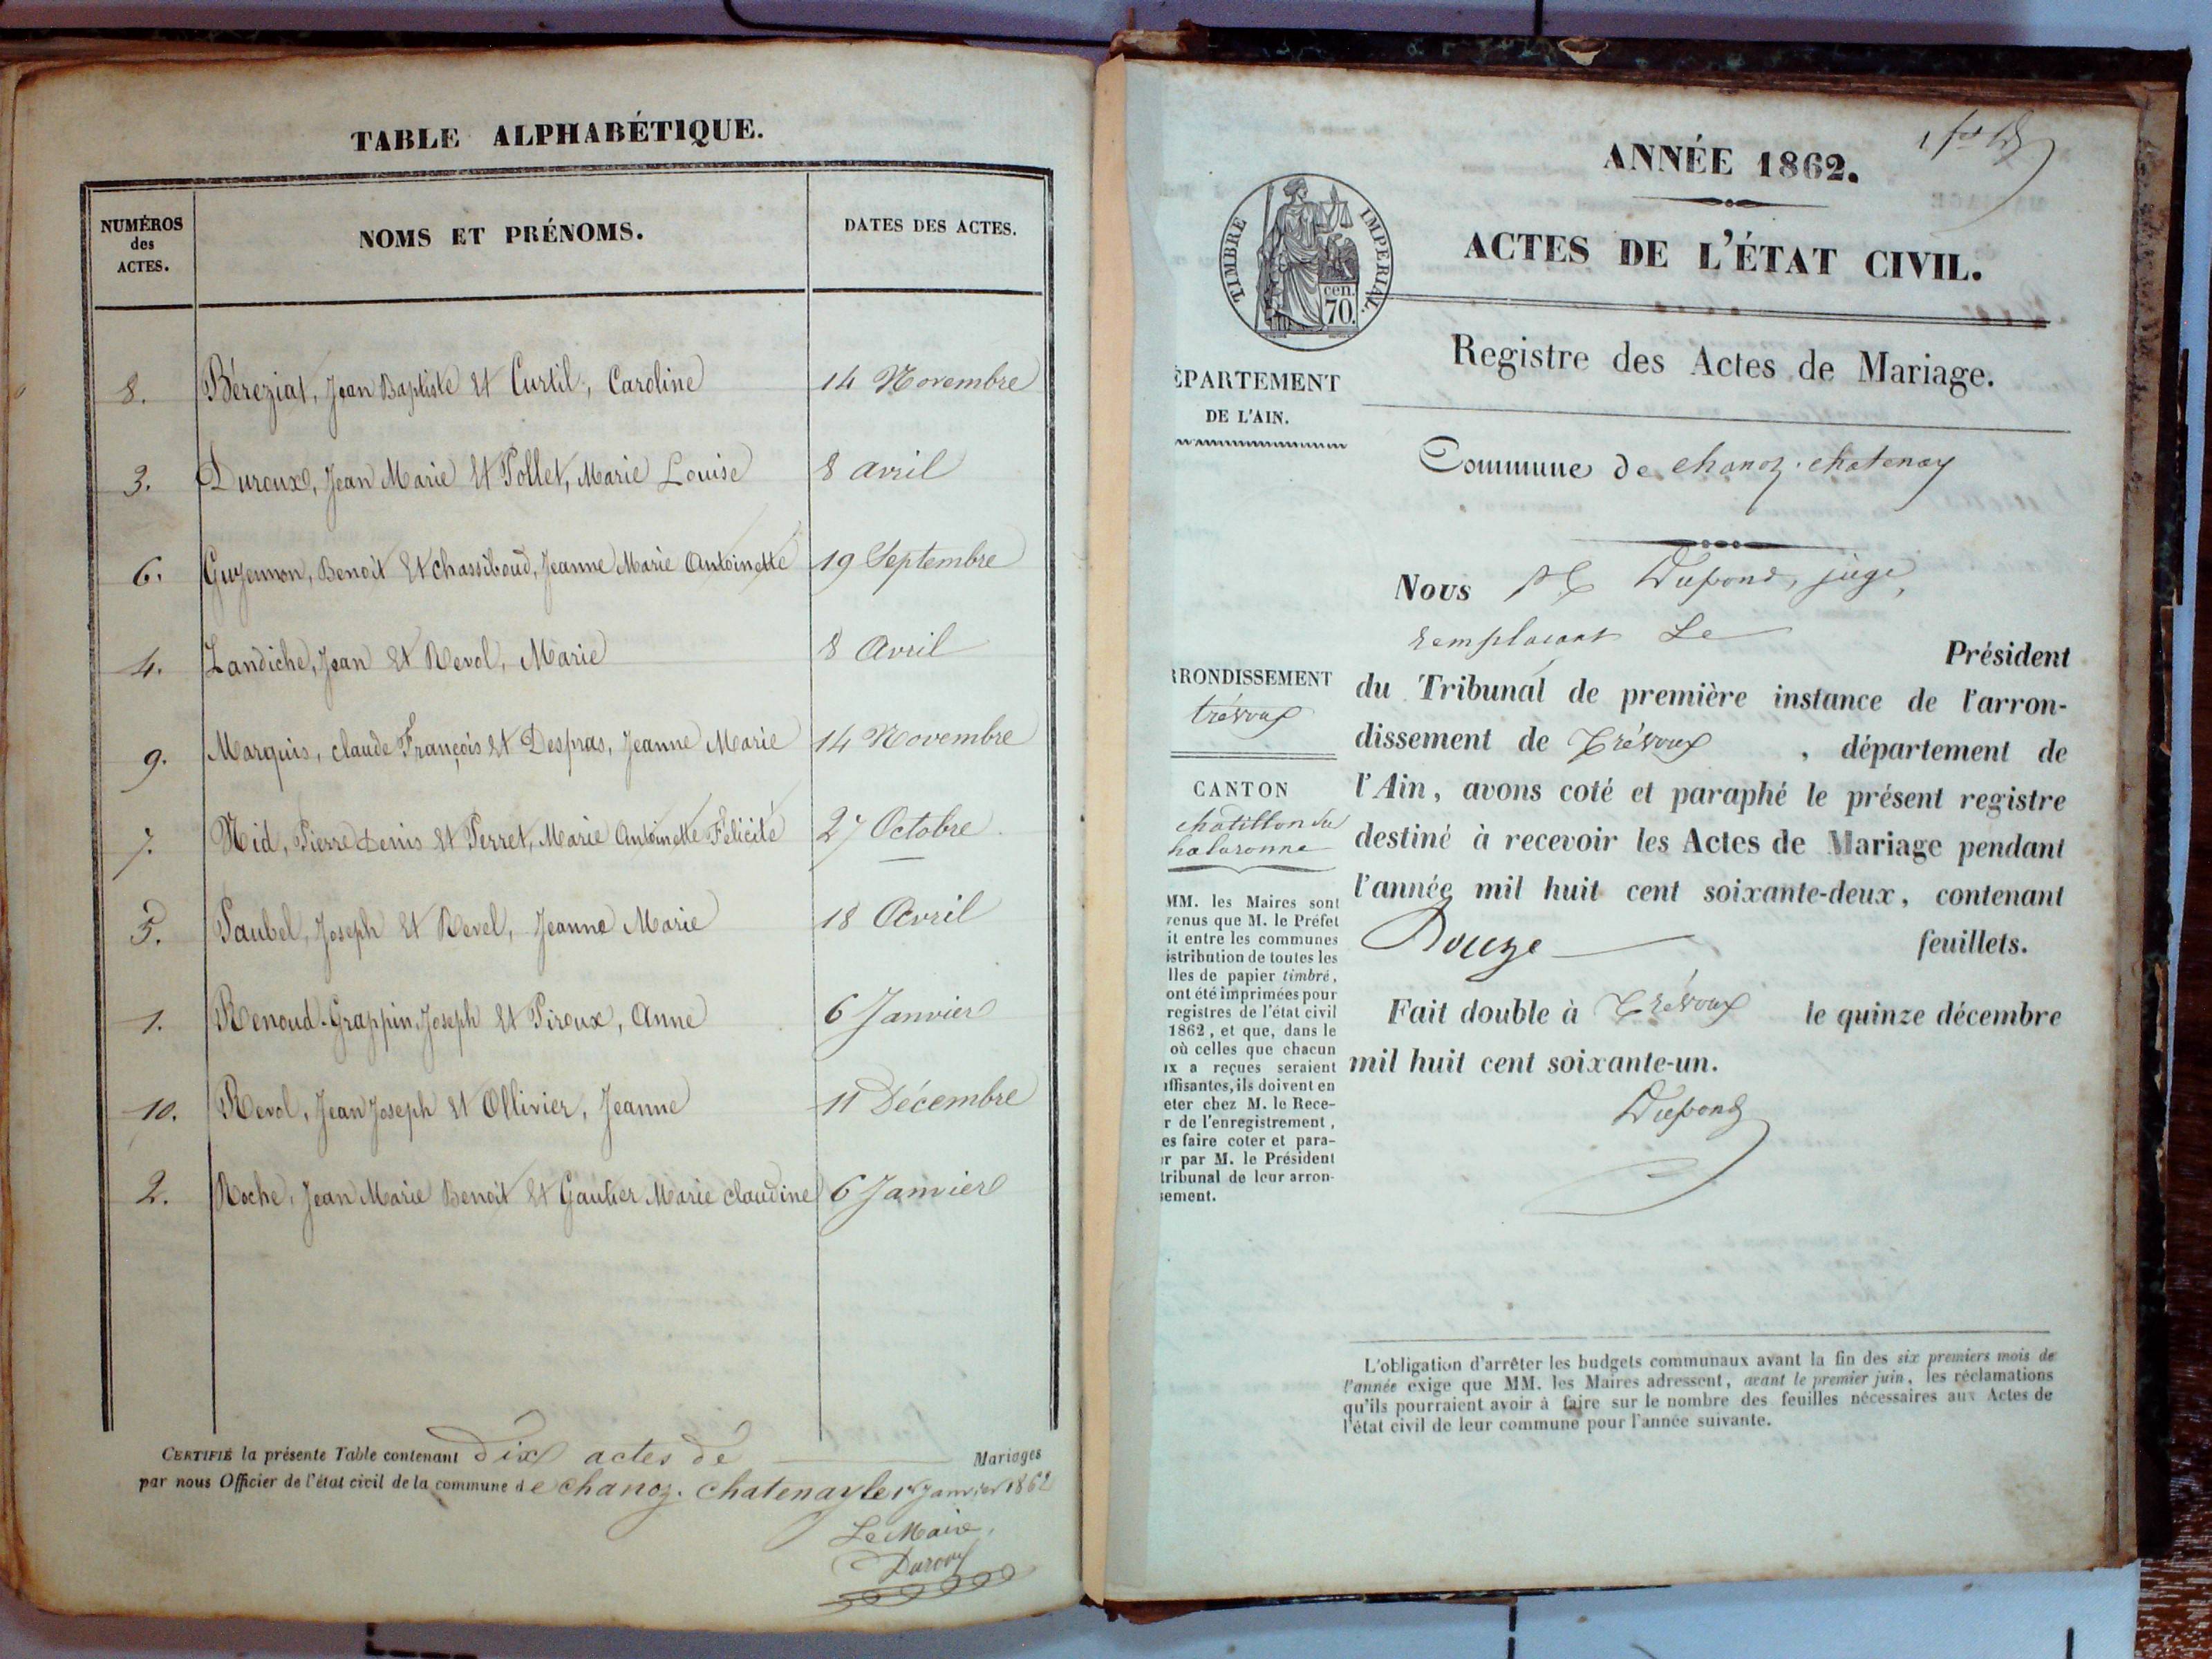 TABLE ALPHABÉTIQUE.
NUMÉROS des ACTES.
NOMS ET PRÉNOMS.
DATES DES ACTES.
8. Béreziat, Jean Baptiste et Curtil, Caroline 14 Novembre
3. Duroux, Jean Marie et Pollet, Marie Louise 8 avril
6. Guyennon, Benoit et Chassiboud, Jeanne Marie Antoinette 19 Septembre
4. Landiche, Jean et Revol, Marie 8 Avril
9. Marquis, Claude François et Despras, Jeanne Marie 14 Novembre
7. Nid, Pierre Denis et Perret, Marie Antoinette Félicité 27 Octobre
5. Paubel, Joseph et Revel, Jeanne Marie 18 Avril
1. Renoud-Grappin, Joseph et Piroux, Anne 6 Janvier
10. Revol, Jean Joseph et Ollivier, Jeanne 11 Décembre
2. Roche, Jean Marie Benoit et Gautier Marie Claudine 6 Janvier
CERTIFIÉ la présente Table contenant dix actes de Mariages
par nous Officier de l'état civil de la commune de chanoz-chatenay le 1er janvier 1862
Le Maire,
Duroux
ANNÉE 1862.
ACTES DE L'ÉTAT CIVIL.
TIMBRE IMPERIAL.
cen.
70.
Registre des Actes de Mariage.
ÉPARTEMENT
DE L'AIN.
Commune de chanoz-chatenay
Nous Dupond, juge,
remplacant Le
Président
RRONDISSEMENT
trévoux
du Tribunal de première instance de l'arron-
dissement de Trévoux, département de
CANTON
chatillon su
halaronne
l'Ain, avons coté et paraphé le présent registre
destiné à recevoir les Actes de Mariage pendant
l'année mil huit cent soixante-deux, contenant
Douze feuillets.
Fait double à Trévoux le quinze décembre
mil huit cent soixante-un.
Dupond
MM. les Maires sont
venus que M. le Préfet
it entre les communes
istribution de toutes les
lles de papier timbré,
ont été imprimées pour
registres de l'état civil
1862, et que, dans le
où celles que chacun
ux a reçues seraient
uffisantes, ils doivent en
eter chez M. le Rece-
r de l'enregistrement,
es faire coter et para-
er par M. le Président
tribunal de leur arron-
sement.
L'obligation d'arrêter les budgets communaux avant la fin des six premiers mois de
l'année exige que MM. les Maires adressent, avant le premier juin, les réclamations
qu'ils pourraient avoir à faire sur le nombre des feuilles nécessaires aux Actes de
l'état civil de leur commune pour l'année suivante.